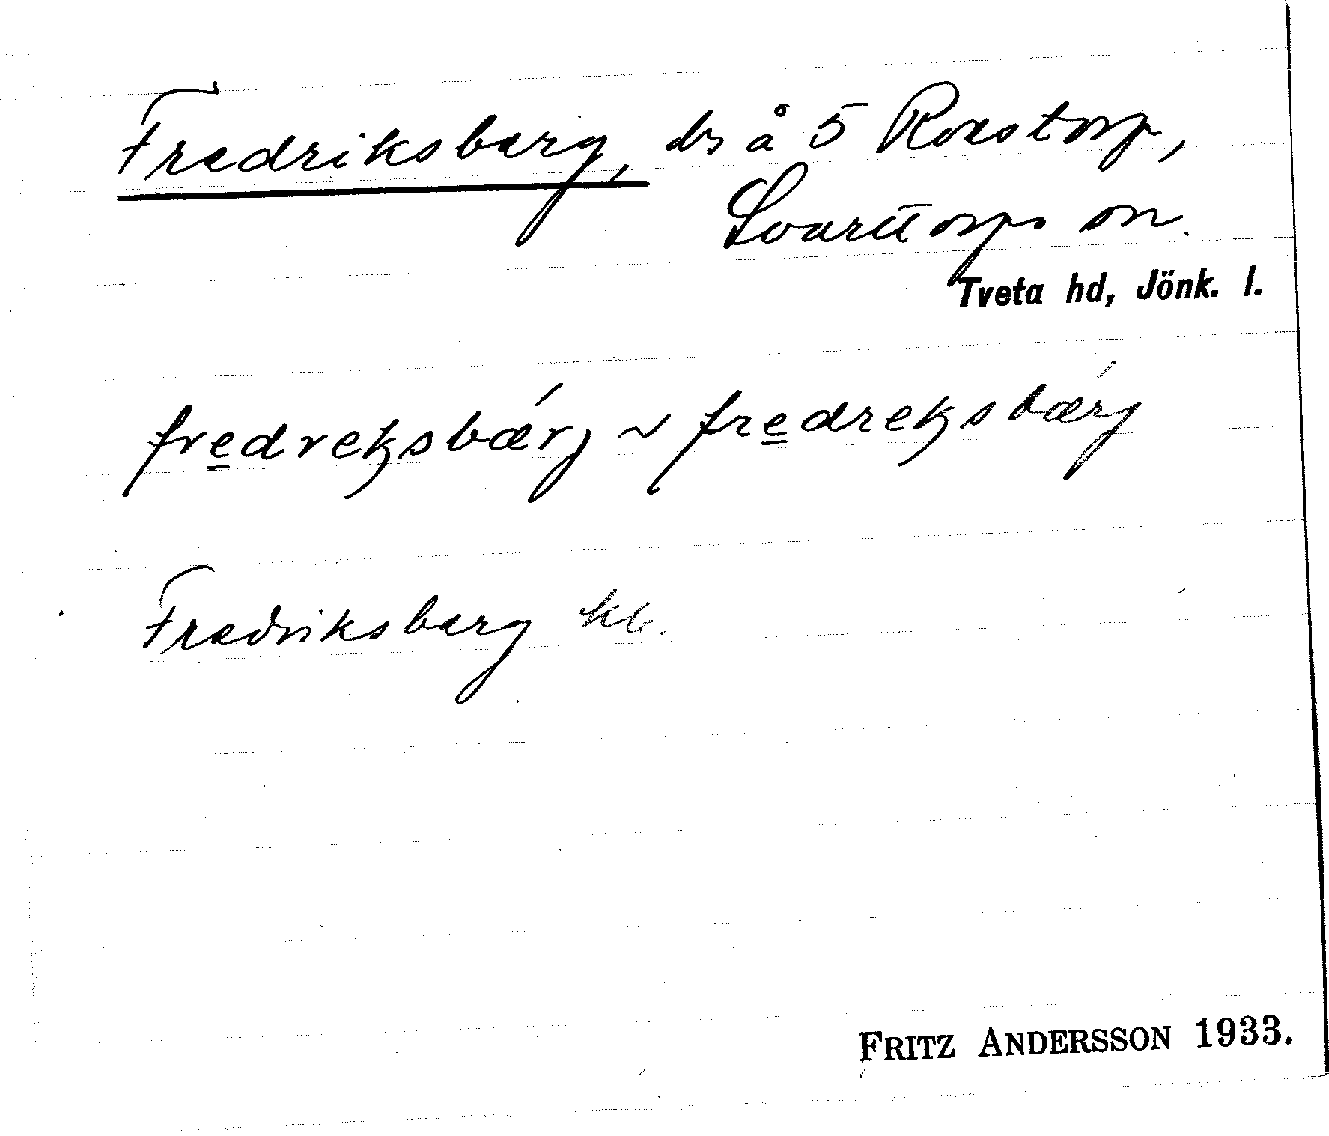 Fredriksberg, ls å 5 Roestorp,
Svarttorps sn.
Tveta hd, Jönk. l.
fredreksbǽrj ~ fredreksbǽrj
Fredriksberg kb.
FRITZ ANDERSSON 1933.